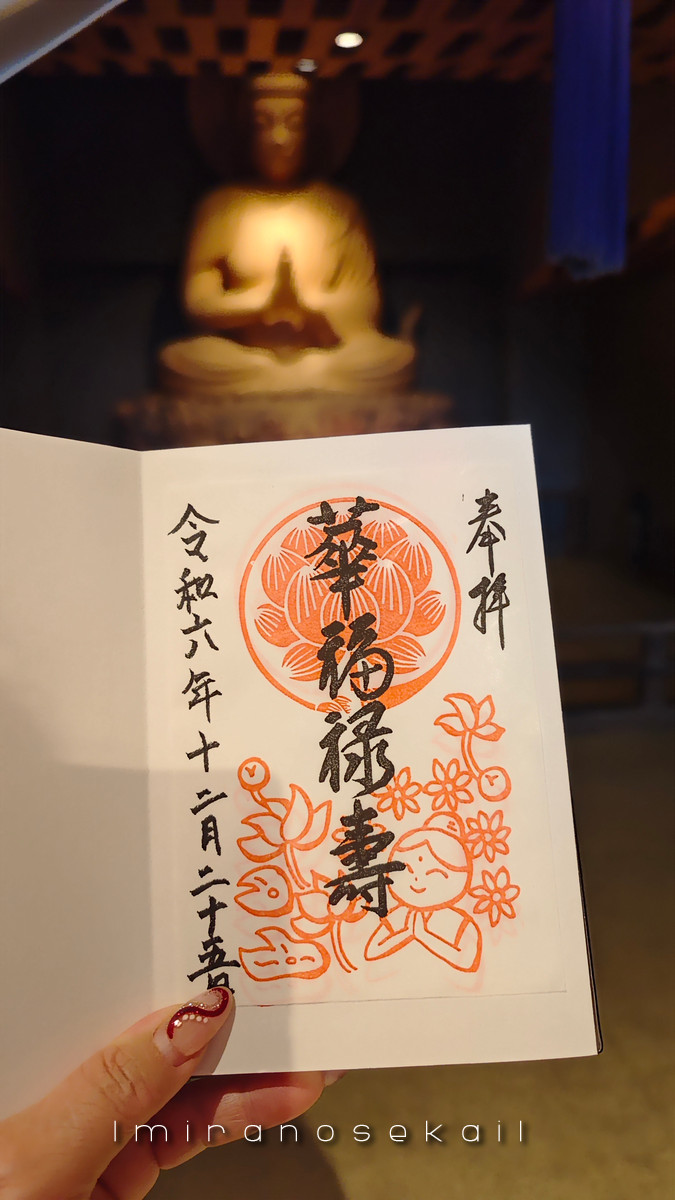 奉拝
華福禄壽
令和六年十二月二十五日
lmiranosekail